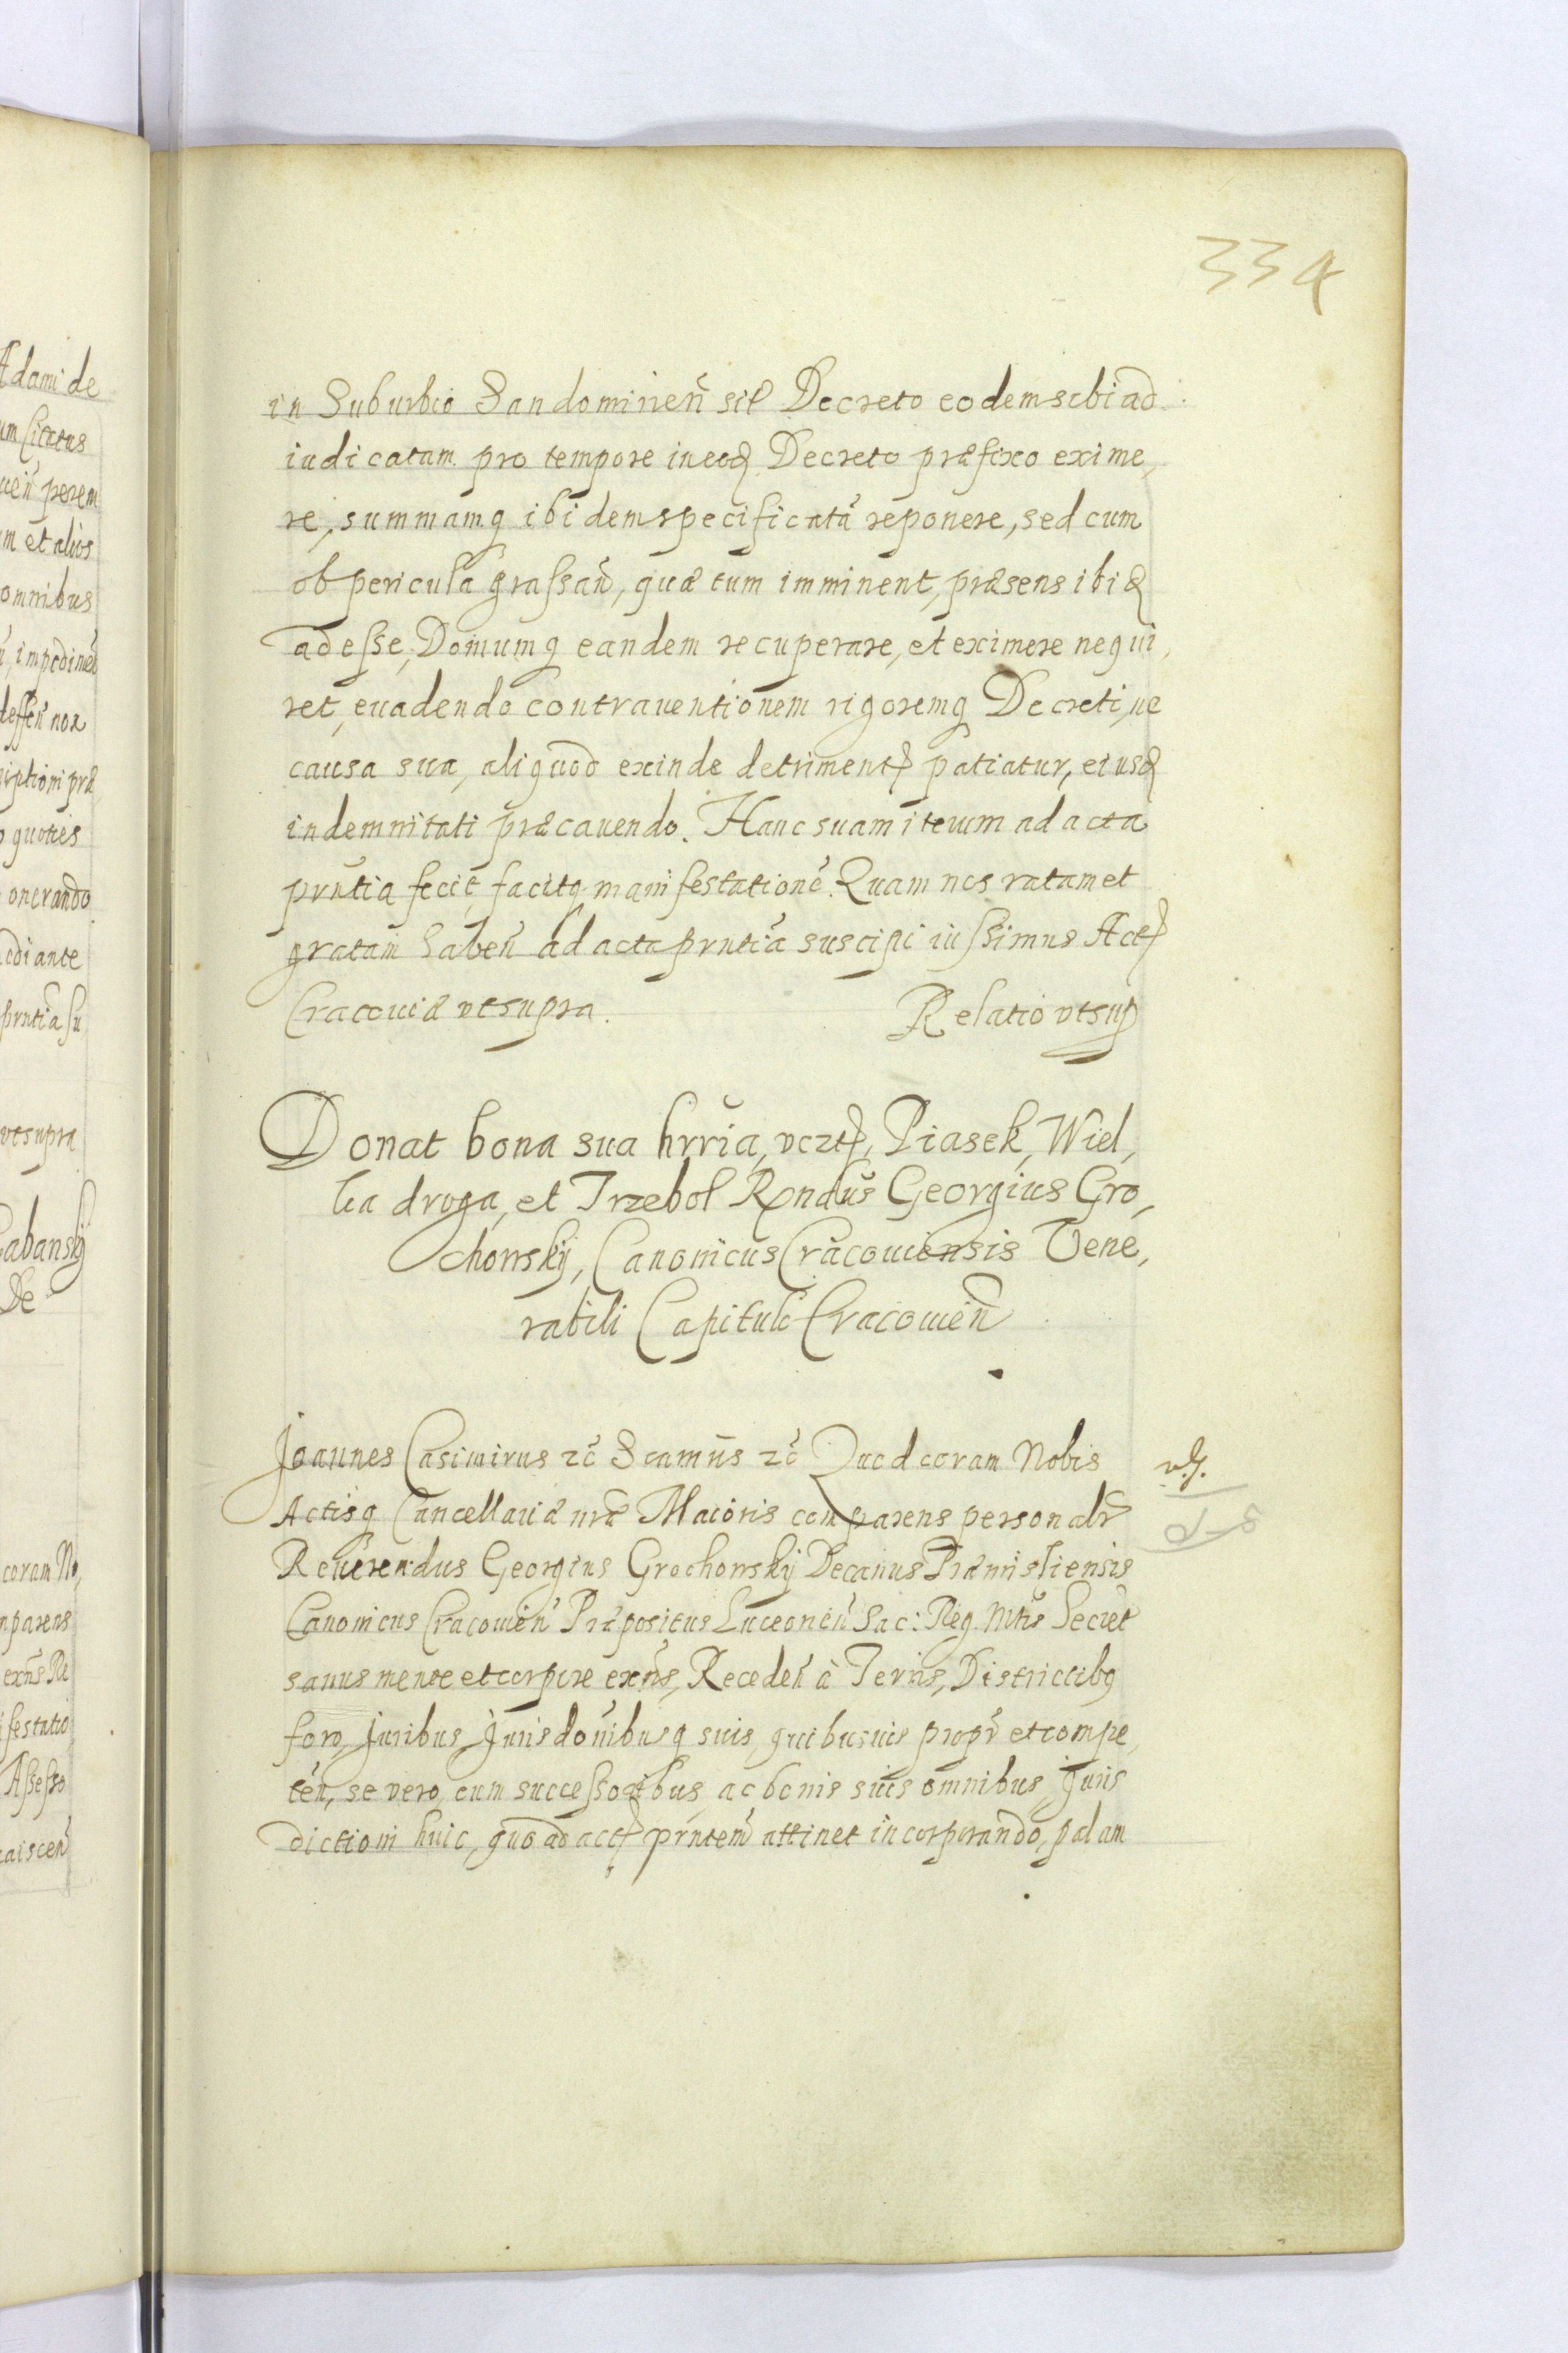 334
in Suburbio Sandomirien̄ sit̄ Decreto eodem sibi ad
iudicatam pro tempore in eođ Decreto præfixo exime,
re, summamq̢ ibidem specificatā reponere, sed cum
ob pericula grassan̄, quæ tum imminent, præsens ibiđ
adesse, Domumq̢ eandem recuperare, et eximere nequi,
ret, euadendo contrauentionem rigoremq̢ Decreti, ne
causa sua, aliquod exinde detrimentꝭ patiatur, eiusđ
indemnitati præcauendo. Hanc suam iterum ad acta
prn̄tia fecit, facitq̢ manifestationē. Quam nos ratam et
gratam haben̄ ad acta prn̄tia suscipi iussimus Actꝭ
Cracouiæ vt supra. Relatio vt sup
Donat bona sua hrr̄ia, vcztꝭ, Piasek, Wiel,
ka droga, et Trzebol Rn̄dus Georgius Gro,
chowskÿ, Canonicus Cracouiensis Vene,
rabili Capitulo Cracouien̄
Joannes Casimirus zc̄ Scamūs zc̄ Quod coram Nobis
Actisq̢ Cancellariæ nr̄æ Maioris comparens personalr̄
Reuerendus Georgius Grochowskÿ Decanus Præmisliensis
Canonicus Cracouien̄ Præpositus Luceorien̄ Sac: Reg. Mtis Secret
sanus mente et corpore exn̄s, Receden̄ à Terris, Districtibq̢
foro, Juribus, Jurisdoīnibusq̢ suis, quibusuis propr̄ et compe,
ten̄, se vero, cum successoribus, ac bonis suis omnibus, Juris
dictioni huic, quo ad actꝭ prn̄tem attinet incorporando, palam